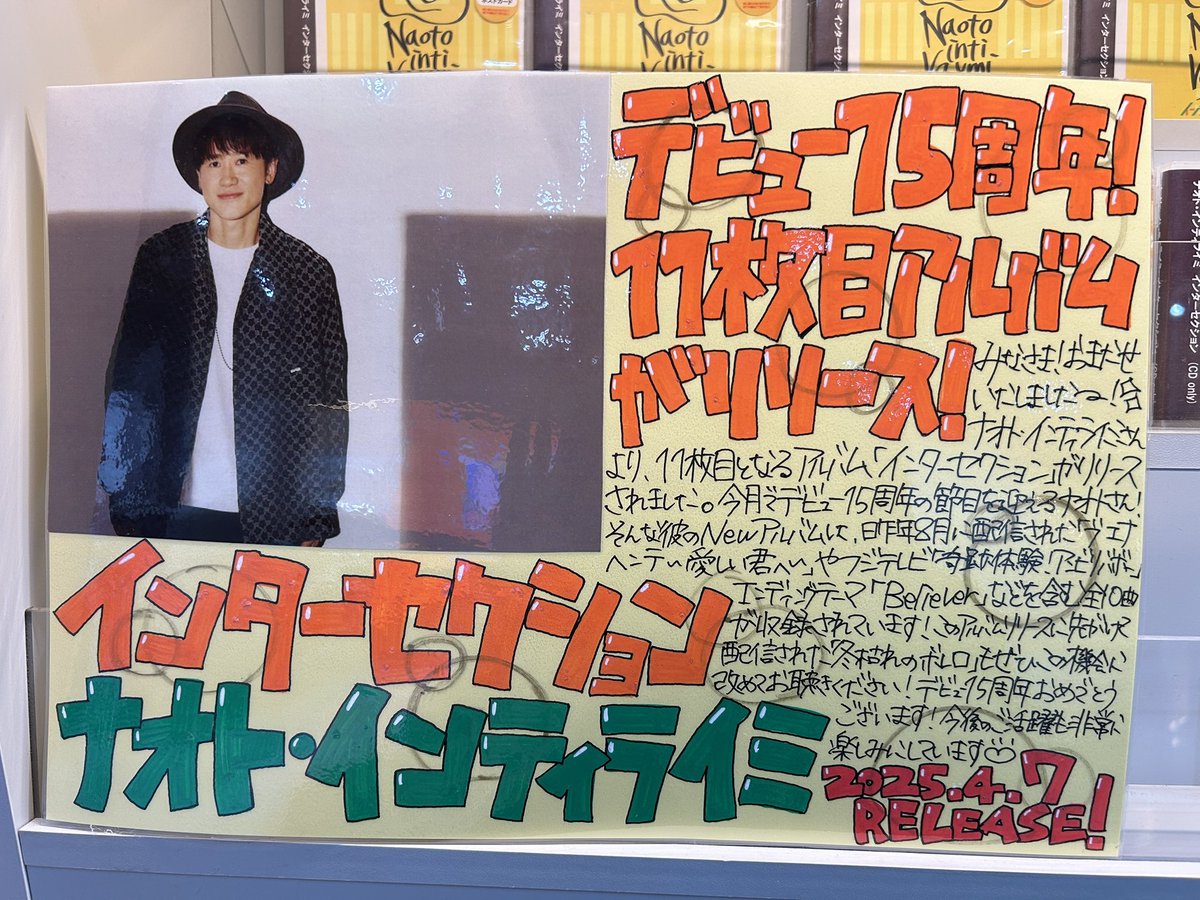 Naoto
inti-
Naoto
inti-
Raymi
Naoto
inti-
デビュー15周年!
11枚目アルバム
がリリース!
みなさま!おまたせ
いたしましたっ!!
ナオト・インティライミさん
より、11枚目となるアルバム「インターセクション」がリリース
されました。今月でデビュー15周年の節目を迎えるナオトさん!
そんな彼のNewアルバムは、昨年8月に配信された「ジェラ
や フジテレビ「奇跡体験!アンビリバボー」
エンディングテーマ「Believer」などを含む全10曲
が収録されています!このアルバムリリースに先がけて
配信された「冬枯れのボレロ」もぜひこの機会に
改めてお聴きください!デビュー15周年おめでとう
ございます!今後のご活躍も非常に
楽しみにしています
インターセクション
ナオト・インティライミ
2025.4.7
RELEASE!
ナオト・インティライミ インターセクション (CD only)